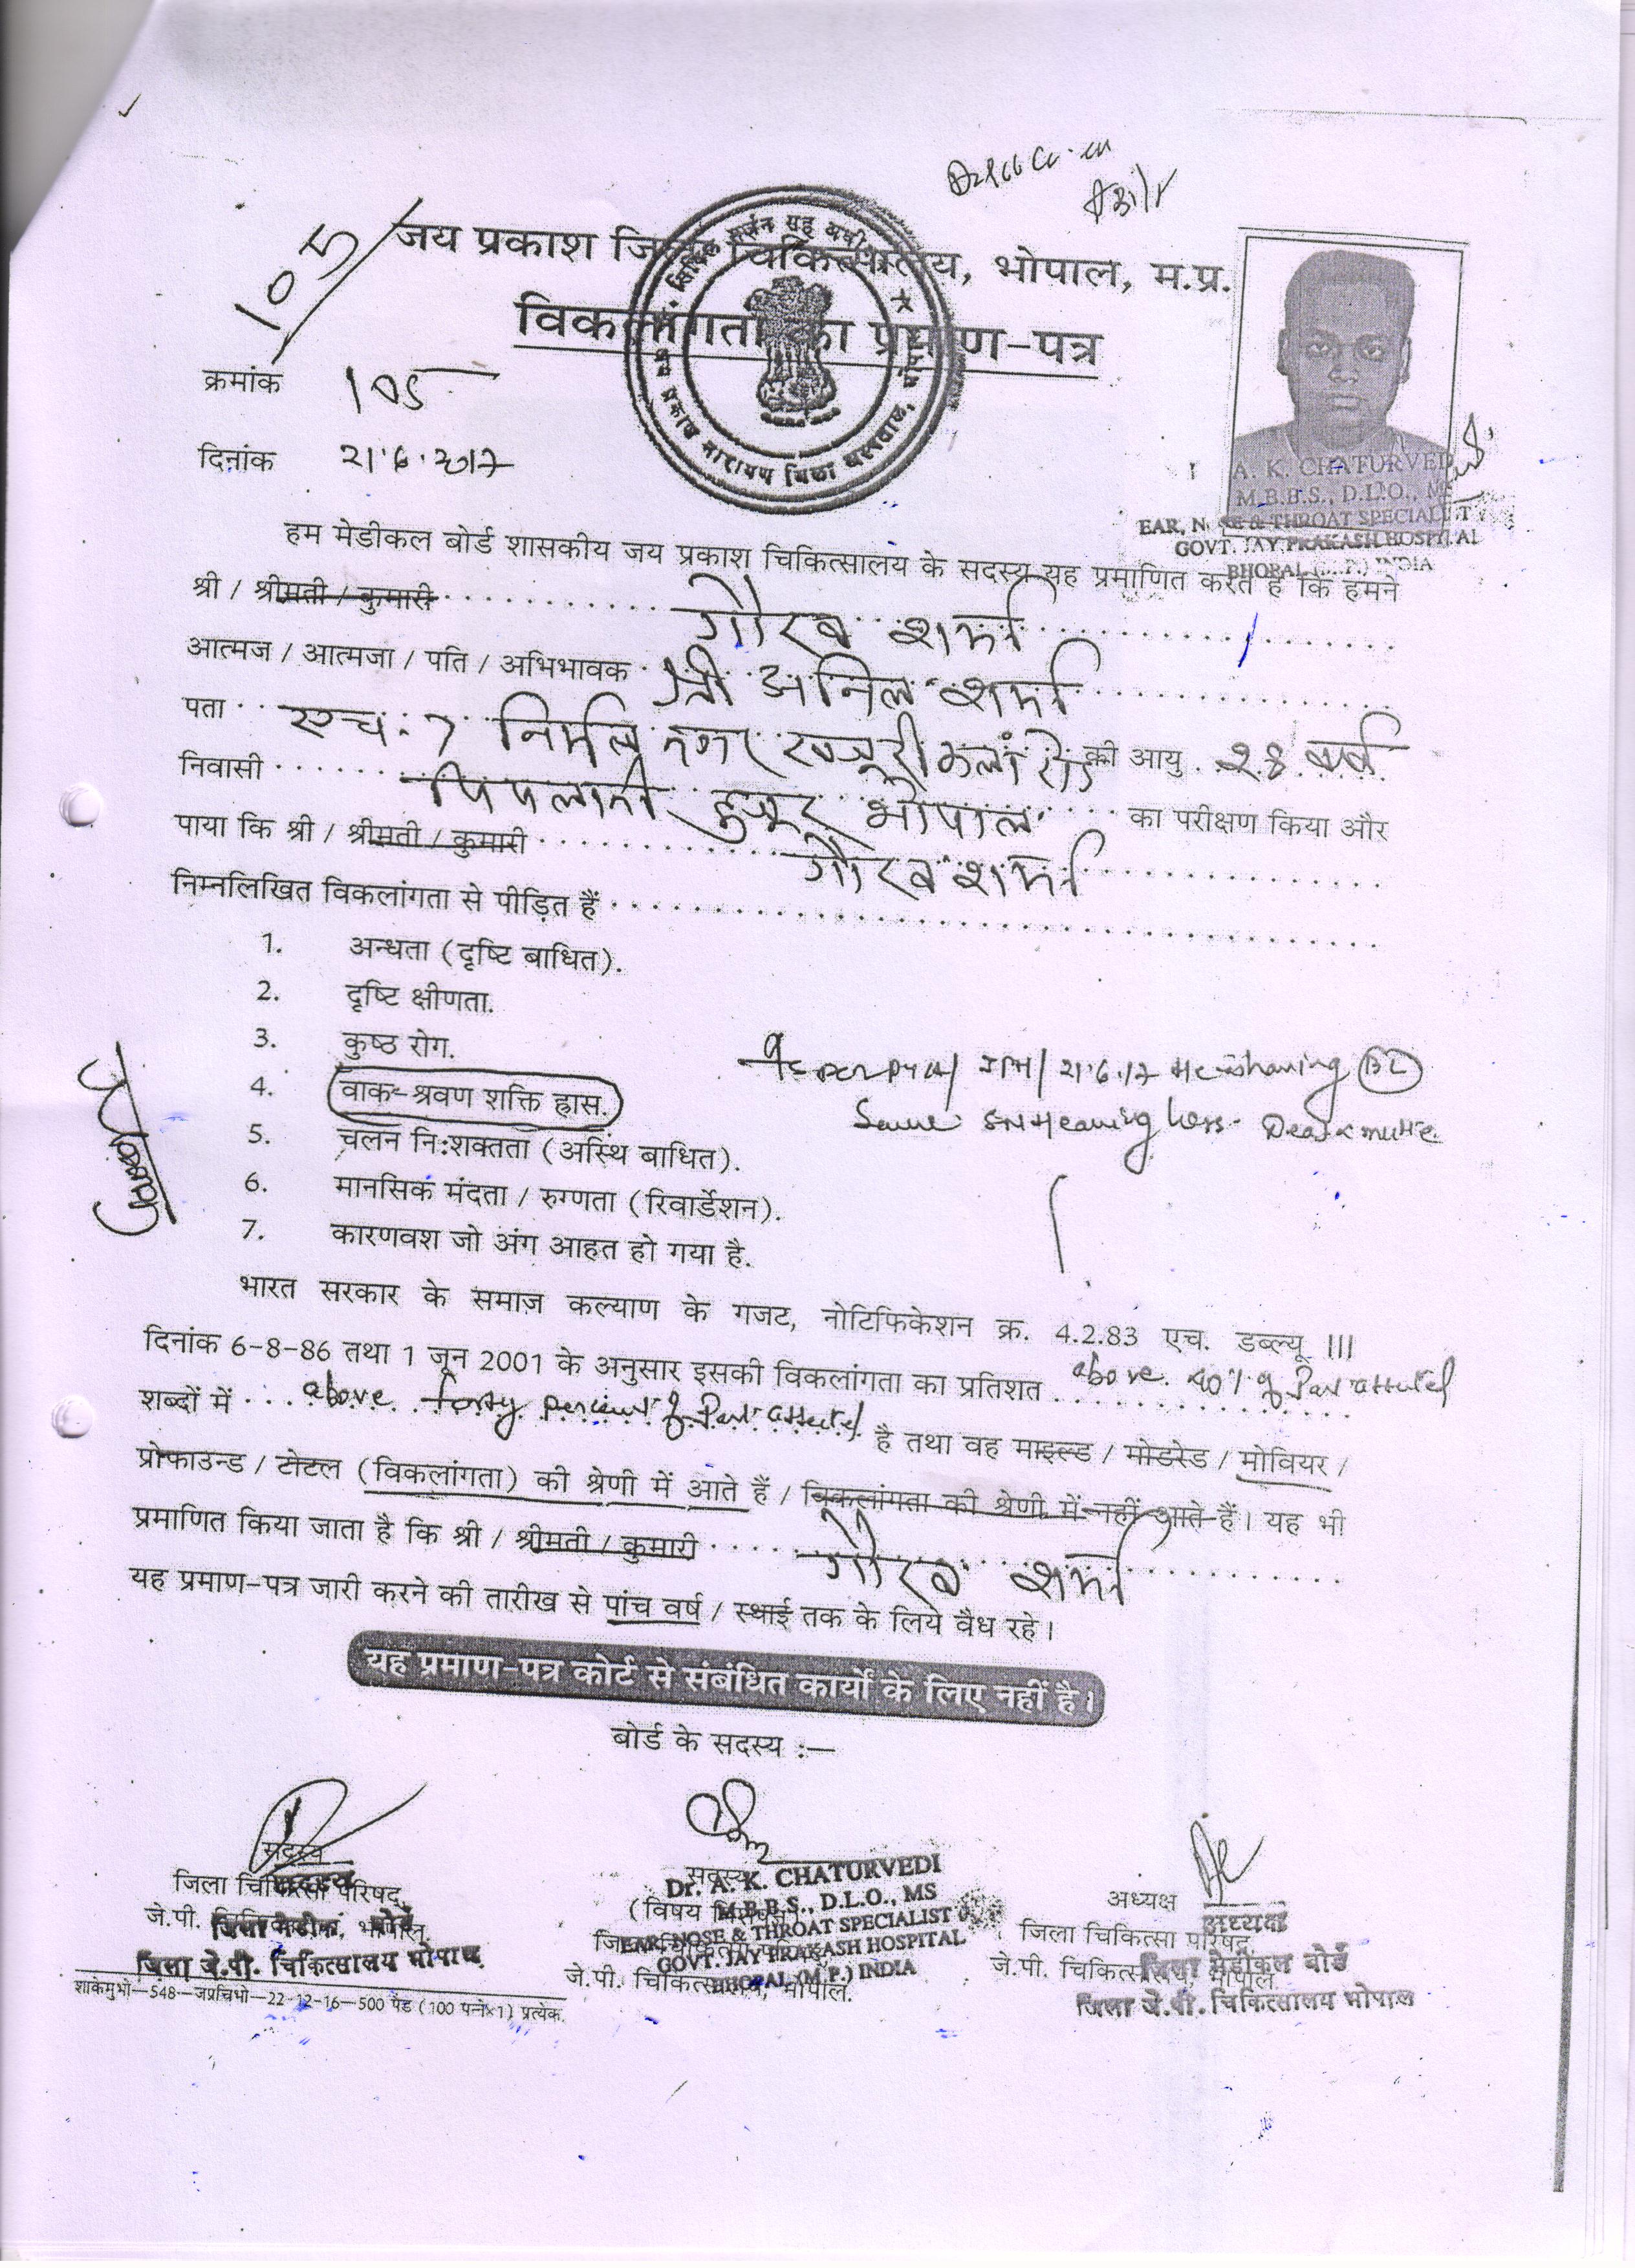 105
जय प्रकाश जि चिकित्सालय, भोपाल, म.प्र.
विकलांगता का प्रमाण-पत्र
क्रमांक 105
दिनांक 21.6.2017
A. K. CHATURVEDI
M.B.B.S., D.L.O., MS
EAR, NOSE & THROAT SPECIALIST
GOVT. JAY PRAKASH HOSPITAL
BHOPAL (M.P.) INDIA
हम मेडीकल बोर्ड शासकीय जय प्रकाश चिकित्सालय के सदस्य यह प्रमाणित करते हैं कि हमने
श्री / श्रीमती / कुमारी गौरव शर्मा
आत्मज / आत्मजा / पति / अभिभावक श्री अनिल शर्मा
पता एच. 7 निर्मल नगर खजूरी कलां रोड की आयु 28 वर्ष
निवासी पिपलानी हुजूर भोपाल का परीक्षण किया और
पाया कि श्री / श्रीमती / कुमारी गौरव शर्मा
निम्नलिखित विकलांगता से पीड़ित हैं
1. अन्धता (दृष्टि बाधित).
2. दृष्टि क्षीणता.
3. कुष्ठ रोग.
4. वाक-श्रवण शक्ति ह्रास.
21.6.17 BL
hearing loss Deaf & mute
5. चलन नि:शक्तता (अस्थि बाधित).
6. मानसिक मंदता / रुग्णता (रिवार्डेशन).
7. कारणवश जो अंग आहत हो गया है.
भारत सरकार के समाज कल्याण के गजट, नोटिफिकेशन क्र. 4.2.83 एच. डब्ल्यू III
दिनांक 6-8-86 तथा 1 जून 2001 के अनुसार इसकी विकलांगता का प्रतिशत above 40% of Part affected
शब्दों में above forty percent of Part affected है तथा वह माइल्ड / मोडरेड / मोवियर /
प्रोफाउन्ड / टोटल (विकलांगता) की श्रेणी में आते हैं / विकलांगता की श्रेणी में नहीं आते हैं। यह भी
प्रमाणित किया जाता है कि श्री / श्रीमती / कुमारी गौरव शर्मा
यह प्रमाण-पत्र जारी करने की तारीख से पांच वर्ष / स्थाई तक के लिये वैध रहे।
यह प्रमाण-पत्र कोर्ट से संबंधित कार्यों के लिए नहीं है।
बोर्ड के सदस्य :—
सदस्य
जिला चिकित्सा परिषद्,
जे.पी. चिकित्सालय, भोपाल.
सदस्य
जिला मेडीकल बोर्ड
जिला जे.पी. चिकित्सालय भोपाल
सदस्य
(विषय
जे.पी. चिकित्सालय, भोपाल.
Dr. A. K. CHATURVEDI
M.B.B.S., D.L.O., MS
EAR, NOSE & THROAT SPECIALIST
GOVT. JAY PRAKASH HOSPITAL
BHOPAL (M.P.) INDIA
अध्यक्ष
जिला चिकित्सा परिषद्,
जे.पी. चिकित्सालय, भोपाल.
अध्यक्ष
जिला मेडीकल बोर्ड
जिला जे.पी. चिकित्सालय भोपाल
शाकेमुभो—548—जप्रचिभो—22-12-16—500 पैड (100 पन्ने×1) प्रत्येक.